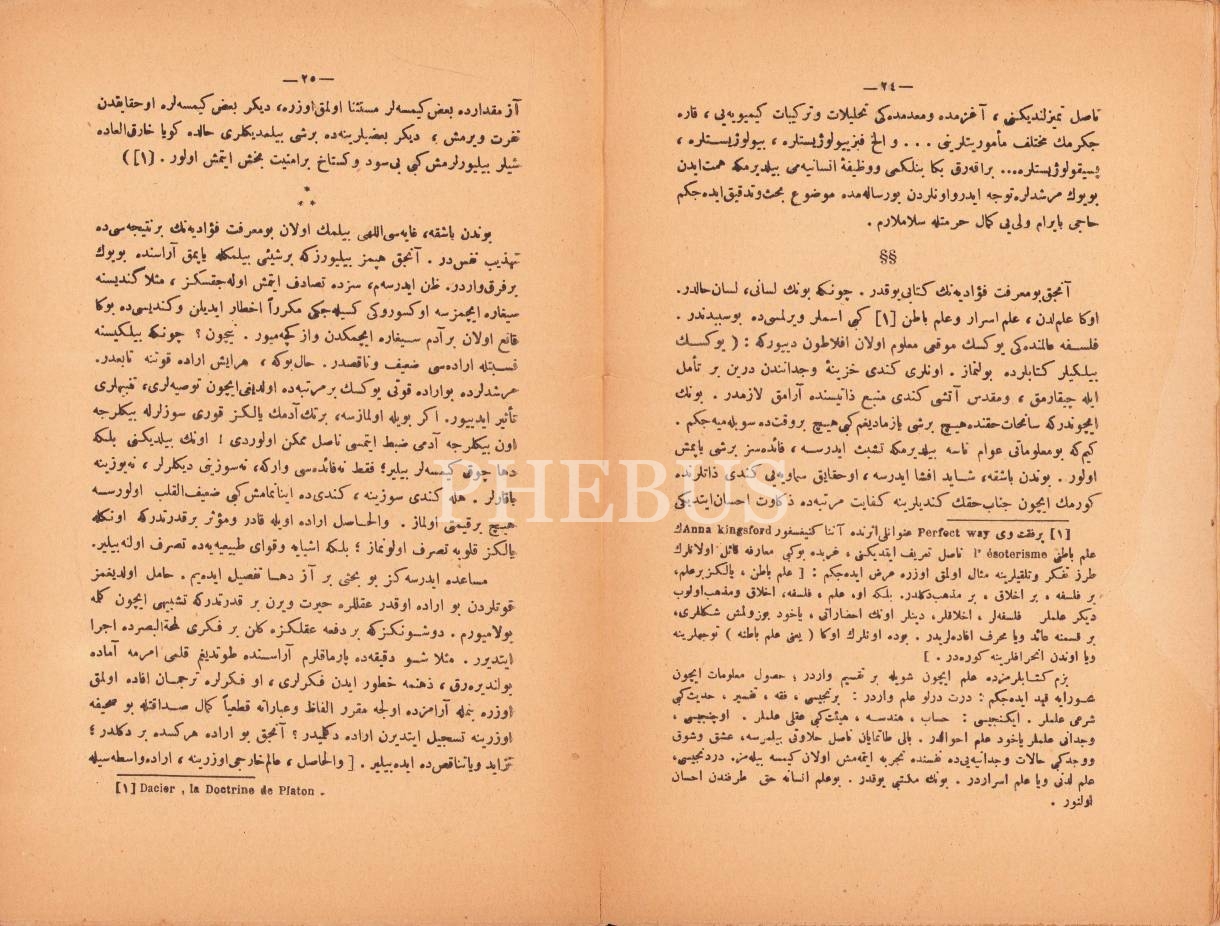 — ٢٤ —
ناصل تميزلنديكنى ، آغزمده ومعدمده‌كى تحليلات وتركيبات كيميويه‌يى ، قاره
جكرمك مختلف مأموريتلرينى ... و الخ فيزييولوژيستلره ، بيولوژيستلره ،
پسيقولوژيستلره... براقه‌رق بكا بنلكمى ووظيفهٔ انسانيه‌مى بيلديرمكه همت ايدن
بويوك مرشدلره توجه ايدر واونلردن بورساله‌مده موضوع بحث وتدقيق ايده‌جكم
حاجى بايرام ولى‌يى كمال حرمتله سلاملارم .
§§
آنجق بومعرفت فؤاديه‌نك كتابى يوقدر . چونكه بونك لسانى، لسان حالدر.
اوكا علم لدن ، علم اسرار وعلم باطن [١] كبى اسملر ويرلمسى ده بوسببدندر .
فلسفه عالمنده‌كى يوكسك موقعى معلوم اولان افلاطون دييوركه : ( يوكسك
بيلكيلر كتابلرده بولنماز . اونلرى كندى خزينهٔ وجدانندن درين بر تأمل
ايله چيقارمق ، ومقدس آتشى كندى منبع ذاتيسنده آرامق لازمدر . بونك
ايچوندركه سانحات حقنده هيچ برشى يازماديغم كبى هيچ بروقت ده سويله‌ميه‌جكم .
كيم‌كه بومعلوماتى عوام ناسه بيلديرمكه تشبث ايدرسه ، فائده‌سز برشى ياپمش
اولور . بوندن باشقه، شايد افشا ايدرسه ، اوحقايق سماويه‌يى كندى ذاتلرنده
كورمك ايچون جناب حقك كنديلرينه كفايت مرتبه‌ده ذكاوت احسان ايتديكى
[١] پرفقت وى Perfect way عنوانلى اثرنده آننا كنيغسفور Anna kingsford ك
علم باطنى l' ésoterisme ناصل تعريف ايتديكنى ، غربده بوكبى معارفه قائل اولانلرك
طرز تفكر وتلقيلرينه مثال اولمق اوزره عرض ايده‌جكم : [ علم باطن ، يالكز برعلم،
بر فلسفه ، بر اخلاق ، بر مذهب دكلدر. بلكه او، علم ، فلسفه، اخلاق ومذهب اولوب
ديكر علملر فلسفه‌لر ، اخلاقلر، دينلر اونك احضاراتى ، ياخود بوزولمش شكللرى،
بر قسمنه عائد ويا محرف افاده‌لريدر . بوده اونلرك اوكا ( يعنى علم باطنه ) توجهلرينه
ويا اوندن انحرافلرينه كوره‌در . ]
بزم كتابلرمزده علم ايچون شويله بر تقسيم واردر : حصول معلومات ايچون
قيد ايده‌جكم : درت درلو علم واردر : برنجيسى ، فقه ، تفسير ، حديث كبى
شرعى علملر . ايكنجيسى : حساب ، هندسه ، هيئت كبى عقلى علملر . اوچنجيسى ،
وجدانى علملر ياخود علم احوالدر . بالى طاتمايان ناصل حلاوتى بيلمزسه، عشق وشوق
ووجد كبى حالات وجدانيه‌يى ده نفسنده تجربه ايتمه‌مش اولان كيمسه بيله‌مز. دردنجيسى،
علم لدنى ويا علم اسراردر . بونك مكتبى يوقدر . بوعلم انسانه حق طرفندن احسان
اولنور .
— ٢٥ —
آز مقدارده بعض كيمسه‌لر مستثنا اولمق اوزره، ديكر بعض كيمسه‌لره اوحقايقدن
نفرت ويرمش ، ديكر بعضيلرينه‌ده برشى بيلمديكلرى حالده كويا خارق العاده
شيلر بيليورلرمش كبى بى سود وكستاخ برامنيت بخش ايتمش اولور . [١] )
*
* *
بوندن باشقه، غايه‌سى اللهى بيلمك اولان بومعرفت فؤاديه‌نك برنتيجه‌سى ده
تهذيب نفس در . آنجق هپمز بيليورزكه برشيئى بيلمكله ياپمق آراسنده بويوك
برفرق واردر. ظن ايدرسه‌م، سزده تصادف ايتمش اوله‌جقسكز ، مثلا كنديسنه
سيغاره ايچمزسه اوكسوروكى كسيله‌جكى مكرراً اخطار ايديلن وكنديسى‌ده بوكا
قانع اولان برآدم سيغاره ايچمكدن واز كچه‌ميور . نيچون ؟ چونكه بيلكيسنه
نسبتله اراده‌سى ضعيف وناقصدر. حال بوكه ، هرايش اراده قوتنه تابعدر.
مرشدلرده بواراده قوتى يوكسك برمرتبه‌ده اولديغى ايچون توصيه‌لرى، تنبيهلرى
تأثير ايدييور. اكر بويله اولمازسه، برتك آدمك يالكز قورى سوزلرله بيكلرجه
اون بيكلرجه آدمى ضبط ايتمسى ناصل ممكن اولوردى ! اونك بيلديكنى بلكه
دها چوق كيمسه‌لر بيلير؛ فقط نه فائده‌سى واركه، نه سوزينى ديكلرلر ، نه يوزينه
باقارلر . هله كندى سوزينه ، كندى‌ده اينانمامش كبى ضعيف القلب اولورسه
هيچ برقيمتى اولماز . والحاصل اراده اويله قادر ومؤثر برقدرتدركه اونكله
يالكز قلوبه تصرف اولونماز ؛ بلكه اشيايه وقواى طبيعيه‌يه‌ده تصرف اولنه‌بيلير.
مساعده ايدرسه‌كز بو بحثى بر آز دها تفصيل ايده‌يم . حامل اولديغمز
قوتلردن بو اراده اوقدر عقللره حيرت ويرن بر قدرتدركه تشبيهى ايچون كله
بولاميورم . دوشونكزكه بر دفعه عقلكزه كلن بر فكرى لمحة البصرده اجرا
ايتديرر . مثلا شو دقيقه‌ده پارماقلرم آراسنده طوتديغم قلمى امرمه آماده
بولنديره‌رق ، ذهنمه خطور ايدن فكرلرى ، او فكرلره ترجمان افاده اولمق
اوزره بنمله آرامزده اولجه مقرر الفاظ وعباراته قطعياً كمال صداقتله بو صحيفه
اوزرينه تسجيل ايتديرن اراده دكلميدر ؟ آنجق بو اراده هركسده بر دكلدر ؛
تزايد وياتناقص ده ايده‌بيلير . [ والحاصل ، عالم خارجى اوزرينه ، اراده واسطه‌سيله
[١] Dacier , la Doctrine de Platon .
PHEBUS